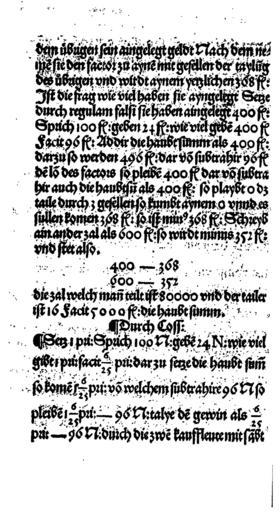 dem übrigen sein aingelegt geldt Nach dem ne-
mẽ sie den factor zu aynẽ mit gesellen der taylũg
des übrigen vnd wirdt aynem yetzlichen 368 fl:
Ist die frag wie viel haben sie ayngelegt Setze
durch regulam falsi sie haben aingelegt 400 fl:
Sprich 100 fl: geben 24 fl: wie viel gebẽ 400 fl:
Facit 96 fl: Addir die haubtsumm als 400 fl:
darzu so werden 496 fl: dar võ subtrahir 96 fl:
dẽ lõ des factors so pleibẽ 400 fl: dar võ subtra
hir auch die haubtsũ als 400 fl: so playbt 0 dz
taile durch 3 gesellen so kumbt aynem 0 vnnd es
sullen komen 368 fl: so ist minꝰ 368 fl: Schreyb
ain ander zal als 600 fl: so wirdt minus 352 fl:
vnd stet also.
400 — 368
600 — 352
die zal welch mañ teilt ist 80000 vnd der tailer
ist 16 Facit 5000 fl: die haubt summ.
¶Durch Coss:
¶Setz 1 pri: Sprich 100 N: gebẽ 24 N: wie viel
gibt 1 pri: facit 6/25 pri: dar zu setze die haubt sum̃
so komẽ 1 6/25 pri: võ welchem subtrahire 96 N so
pleibẽ 1 6/25 pri: — 96 N: talye dẽ gewin als 6/25
pri: — 96 N: durch die zwẽ kauffleute mit sãbt